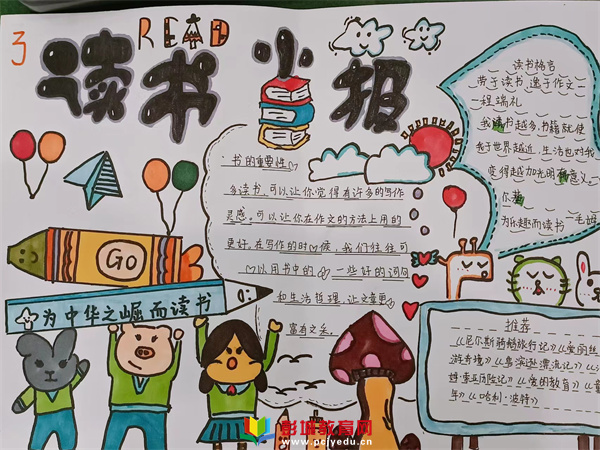 3
READ
读书小报
读书格言
劳于读书,逸于作文
—程端礼
我读书越多,书籍就使
我于世界越近,生活也对我
变得越加光明和有意义。—
为乐趣而读书 —毛姆
·书的重要性
多读书,可以让你觉得有许多的写作
灵感。可以让你在作文的方法上用的
更好。在写作的时候,我们往往可
以用书中的一些好的词句
和生活哲理,让文章更
富有文采。
GO
为中华之崛而读书
推荐
《尼尔斯骑鹅旅行记》《爱丽丝
游奇境》《鲁滨逊漂流记》《
姆·索亚历险记》《爱的教育》《童
年》《哈利·波特》
彭城教育网
www.pcjyedu.cn